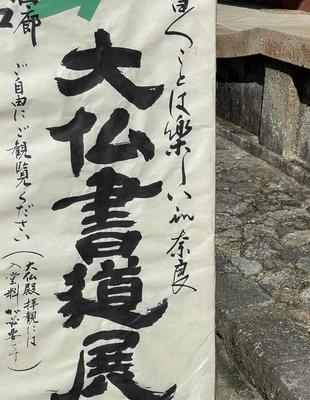 書くことは楽しいin奈良
大仏書道展
廊
ご自由にご観覧ください
(大仏殿拝観には
入堂料が必要です)